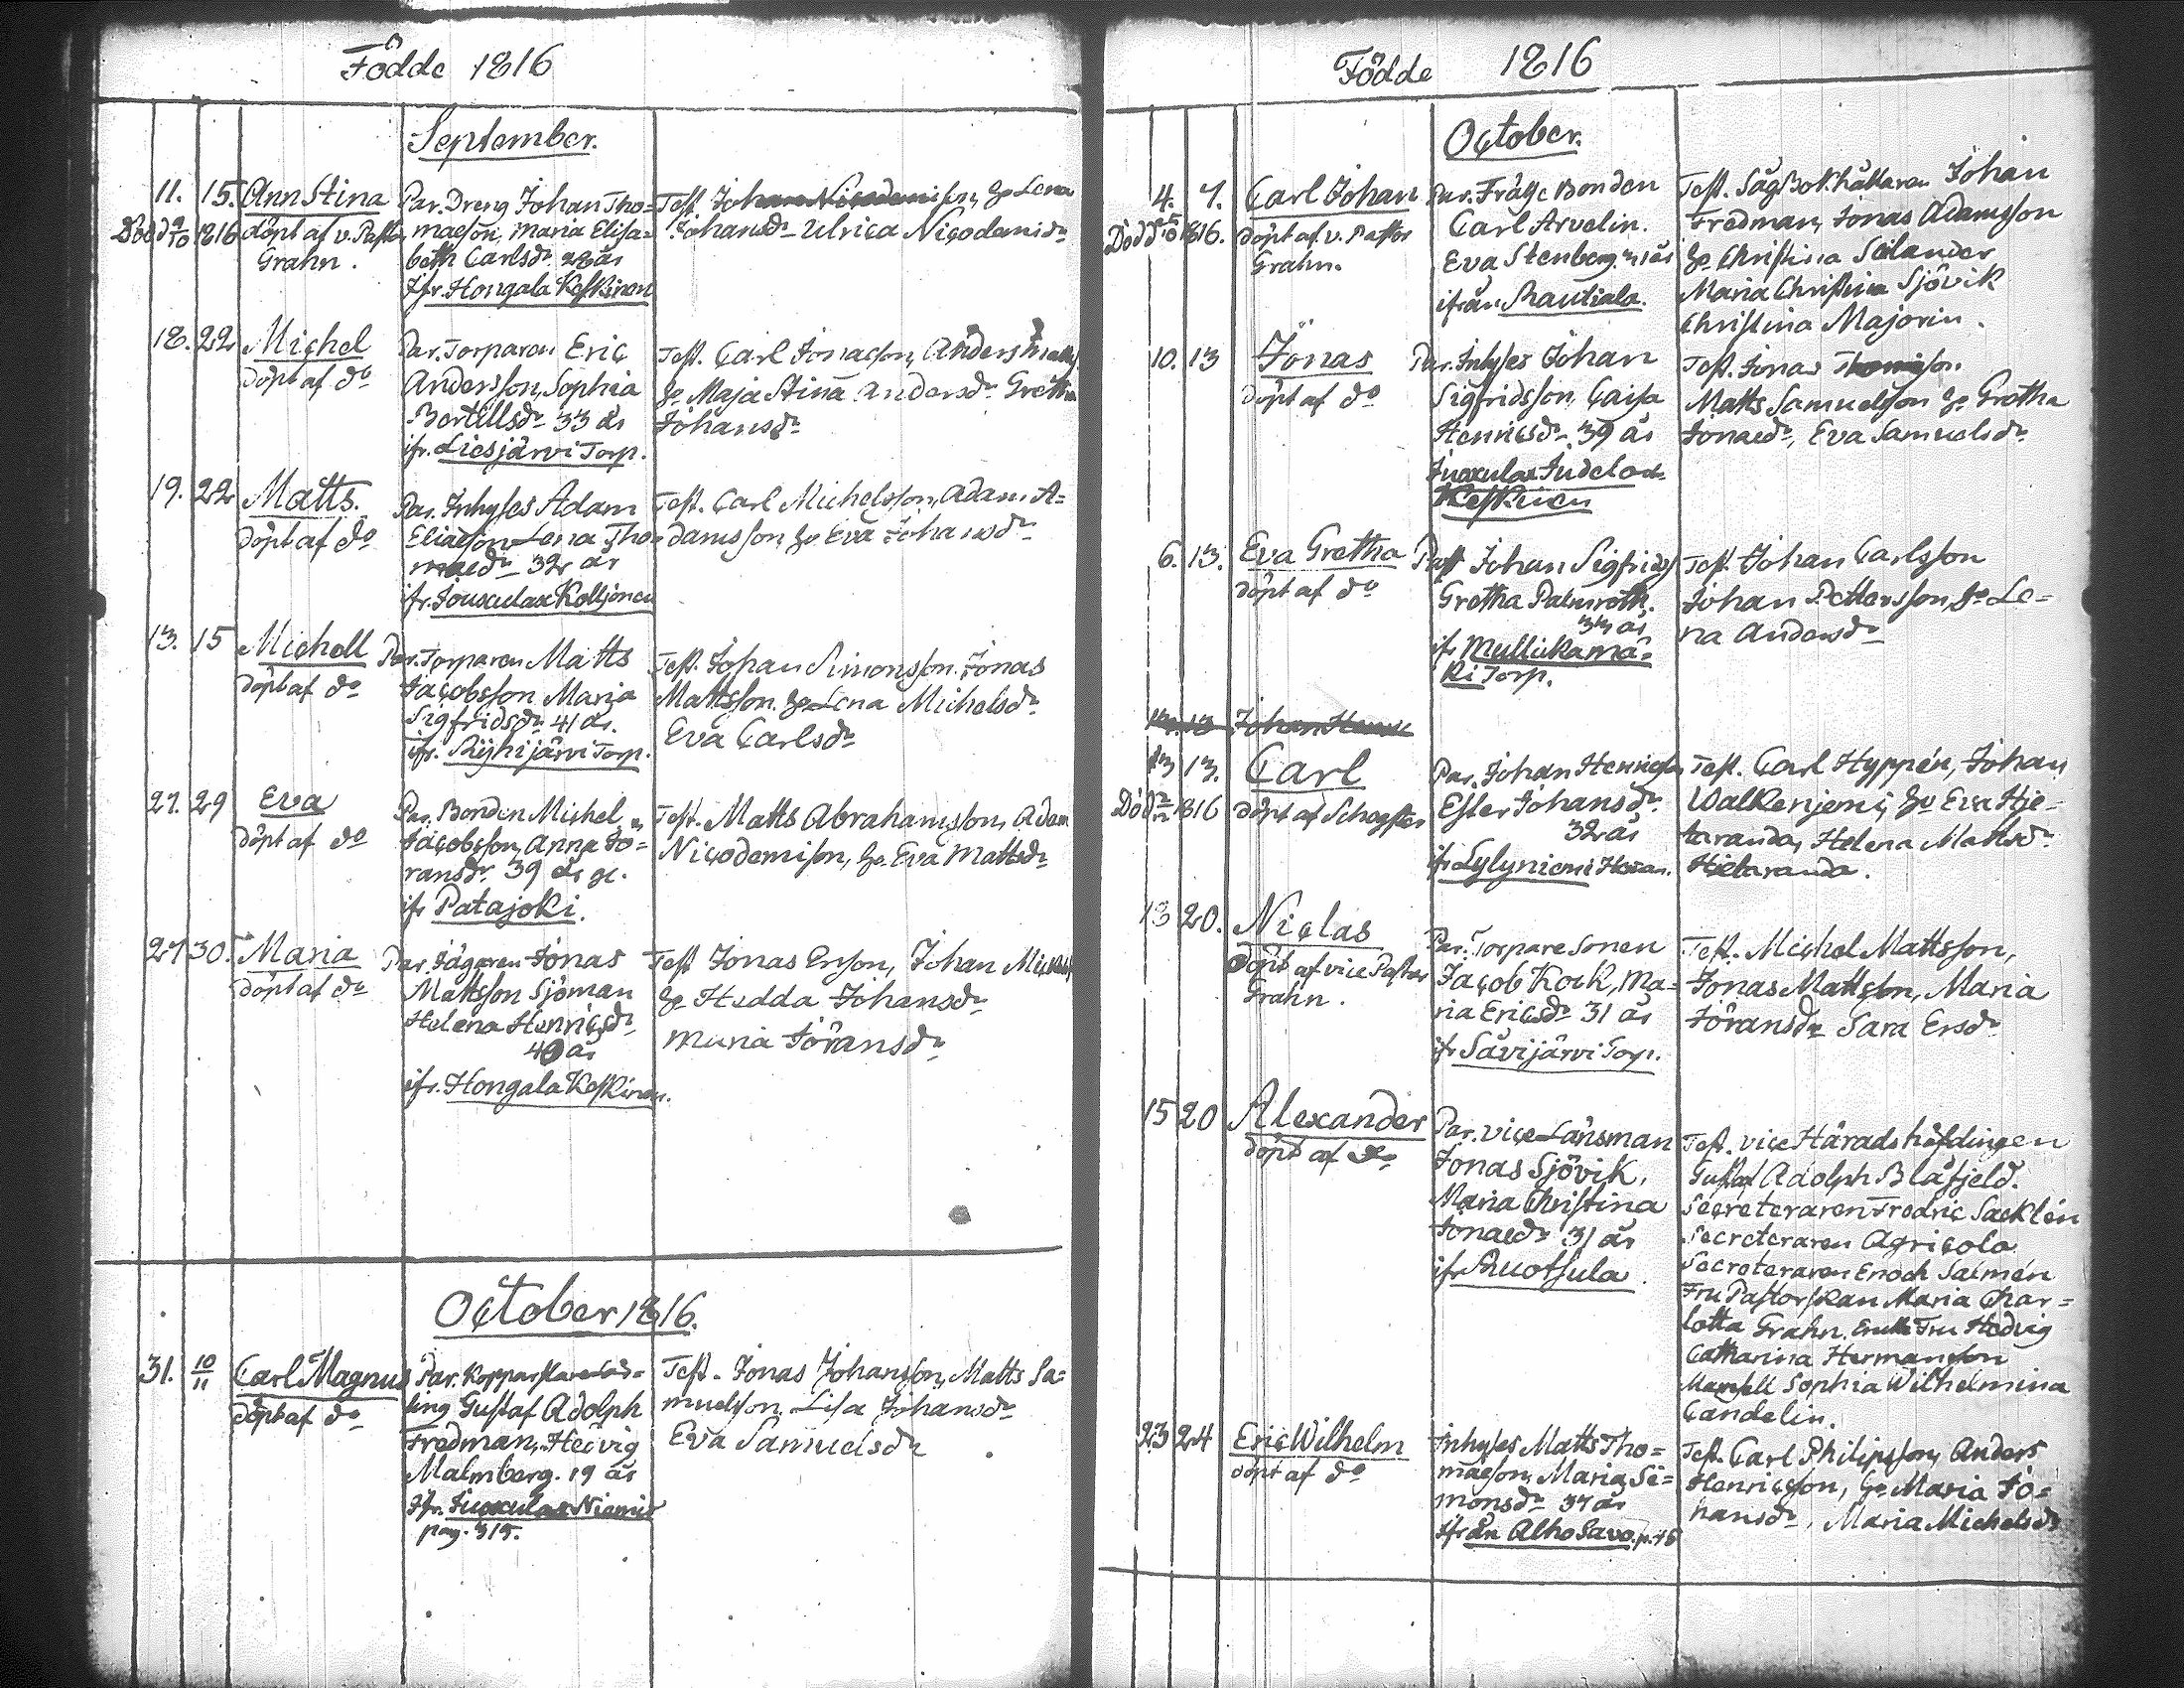 Födde 1816
September.
11. 15. Ann Stina
Död 9/10 1816 döpt af v. Pastor
Grahn.
Par. Dreng Johan Tho=
maeson, Maria Elisa=
beth Carlsdr 28 år
ifr. Hongala Keskinen
Test. Johan Nicodemisson, ho Lena
Johansdr Ulrica Nicodemidr
18. 22 Michel
döpt af do
Par. Torparen Eric
Andersson, Sophia
Bertillsdr 33 år
ifr. Liesjärvi Torp.
Test. Carl Jonaeson, Anders
ho Maja Stina Andersdr Gretha
Johansdr
19. 22 Matts.
döpt af do
Par. Inhyses Adam
Eliaeson Lena Tho=
maedr 32 år
ifr. Jouxulax Kolljonen
Test. Carl Michelsson, Adam A=
damsson, ho Eva Johansdr
13. 15 Michell
döpt af do
Par. Torparen Matts
Jacobsson Maria
Sigfridsdr 41 år.
ifr. Ryhijärvi Torp.
Test. Johan Simonsson. Jonas
Mattsson. ho Lena Michelsdr
Eva Carlsdr
27. 29 Eva
döpt af do
Par. Bonden Michel
Jacobsson, Anna Jö=
ransdr 39 år
ifr Patajoki.
Test. Matts Abrahamsson, Adam
Nicodemison, ho Eva Mattsdr
27 30. Maria
döpt af do
Par. Jägaren Jonas
Mattsson Sjöman
Helena Henricsdr
40 år
ifr. Hongala Keskinen.
Test Jonas Erson, Johan
ho Hedda Johansdr
Maria Jöransdr
October 1816.
31. 10/11 Carl Magnus
döpt af do
Par. Kopparslare
ling Gustaf Adolph
Fredman, Hedvig
Malmberg. 19 år
ifr. Juoxulax Niemis
pag. 315.
Test. Jonas Johansson, Matts Sa=
muelsson. Lisa Johansdr
Eva Samuelsdr
Födde 1816
October.
4. 7. Carl Johan
Död 1816. döpt af v. Pastor
Grahn.
Par. Frälse Bonden
Carl Arvelin.
Eva Stenberg. 31 år
ifrån Rautiala.
Test. Såg Bokhållaren Johan
Fredman, Jonas Adamsson
ho Christina Selander
Maria Christina Sjövik
Christina Majorin.
10. 13 Jonas
döpt af do
Par. Inhyses Johan
Sigfridsson, Caisa
Henricsdr. 39 år
Juoxulax Judelax
Keskinen
Test. Jonas
Matts Samuelsson ho Gretha
Jonaedr, Eva Samuelsdr
6. 13. Eva Gretha
döpt af do
Johan Sigfrids
Gretha Palmroth.
33 år
ifr Mullickamä=
ki Torp.
Test. Johan Carlsson
Johan Pettersson, ho Le=
na Andersdr
13. 13 Johan Henric
13 13. Carl
Död 1816 döpt af
Par. Johan Henricsson
Ester Johansdr.
32 år
ifr Lylyniemi
Test. Carl Hyppén, Johan
Walkenjemi, ho Eva Hje=
taranda, Helena Mattsdr
Hjetaranda.
13 20. Niclas
döpt af vice Pastor
Grahn.
Par. Torpare Sonen
Jacob Kock, Ma=
ria Ericsdr 31 år
ifr Savijärvi Torp.
Test. Michel Mattsson,
Jonas Mattsson, Maria
Jöransdr Sara Ersdr
15 20 Alexander
döpt af do
Par. vice Länsman
Jonas Sjövik,
Maria Christina
Jonaedr 31 år
ifr Ruotsula.
Test. vice Häradshöfdingen
Gustaf Adolph Blåfjeld.
Secreteraren Fredric Sacklén
Secreteraren Agricola
Secreteraren Enoch Salmén
Fru Pastorskan Maria Char=
lotta Grahn. Fru Hedvig
Catharina Hermanson
Mamsell Sophia Wilhelmina
Candelin.
23 24 Eric Wilhelm
döpt af do
Inhyses Matts Tho=
maeson, Maria Si=
monsdr 37 år
ifrån Alho Savo.
Test. Carl Philipsson, Anders
Henricsson, ho Maria Jo=
hansdr, Maria Michelsdr